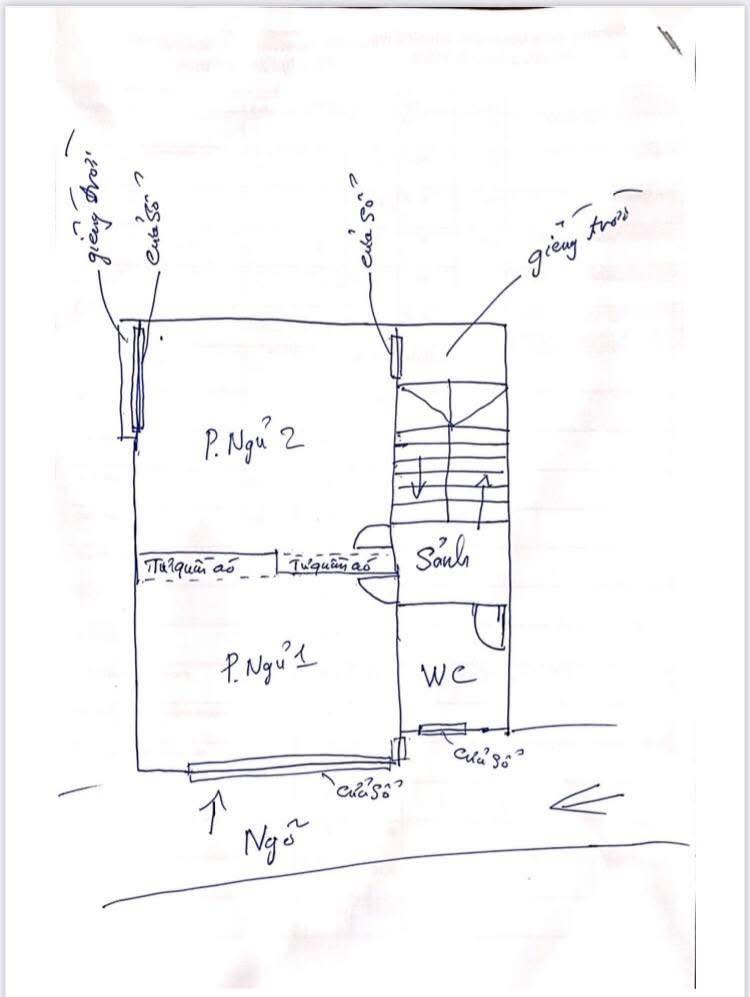 giếng trời
cửa sổ
cửa sổ
giếng trời
P. Ngủ 2
Tủ quần áo
Tủ quần áo
Sảnh
P. Ngủ 1
WC
cửa sổ
cửa sổ
Ngõ